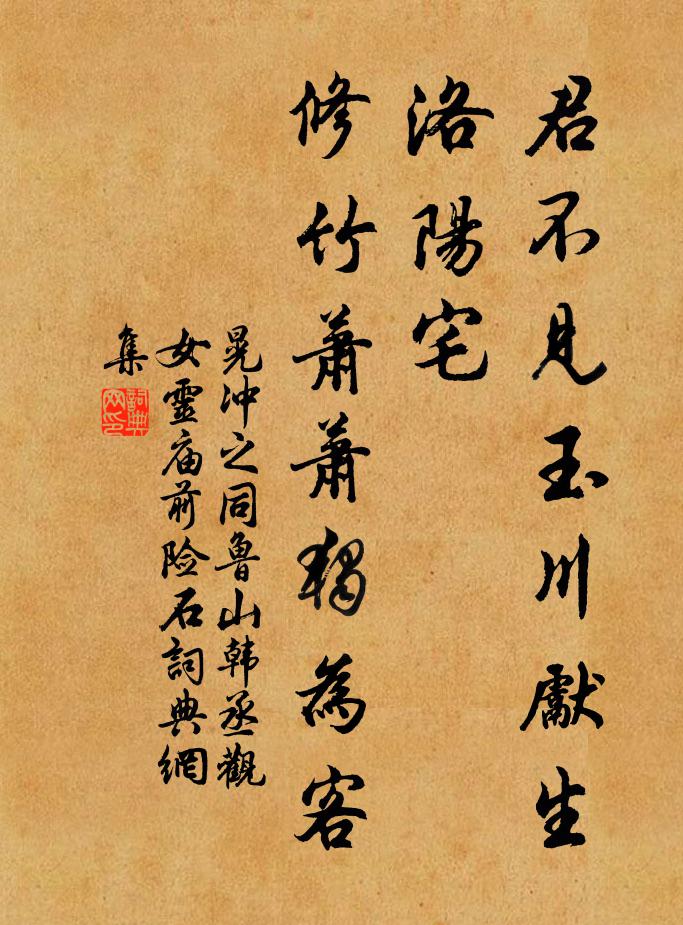 君不見玉川獻生
洛陽宅
修竹蕭蕭獨為客
晁冲之同鲁山韩丞觀
女靈庙前险石詞典網
集
詞典
网印